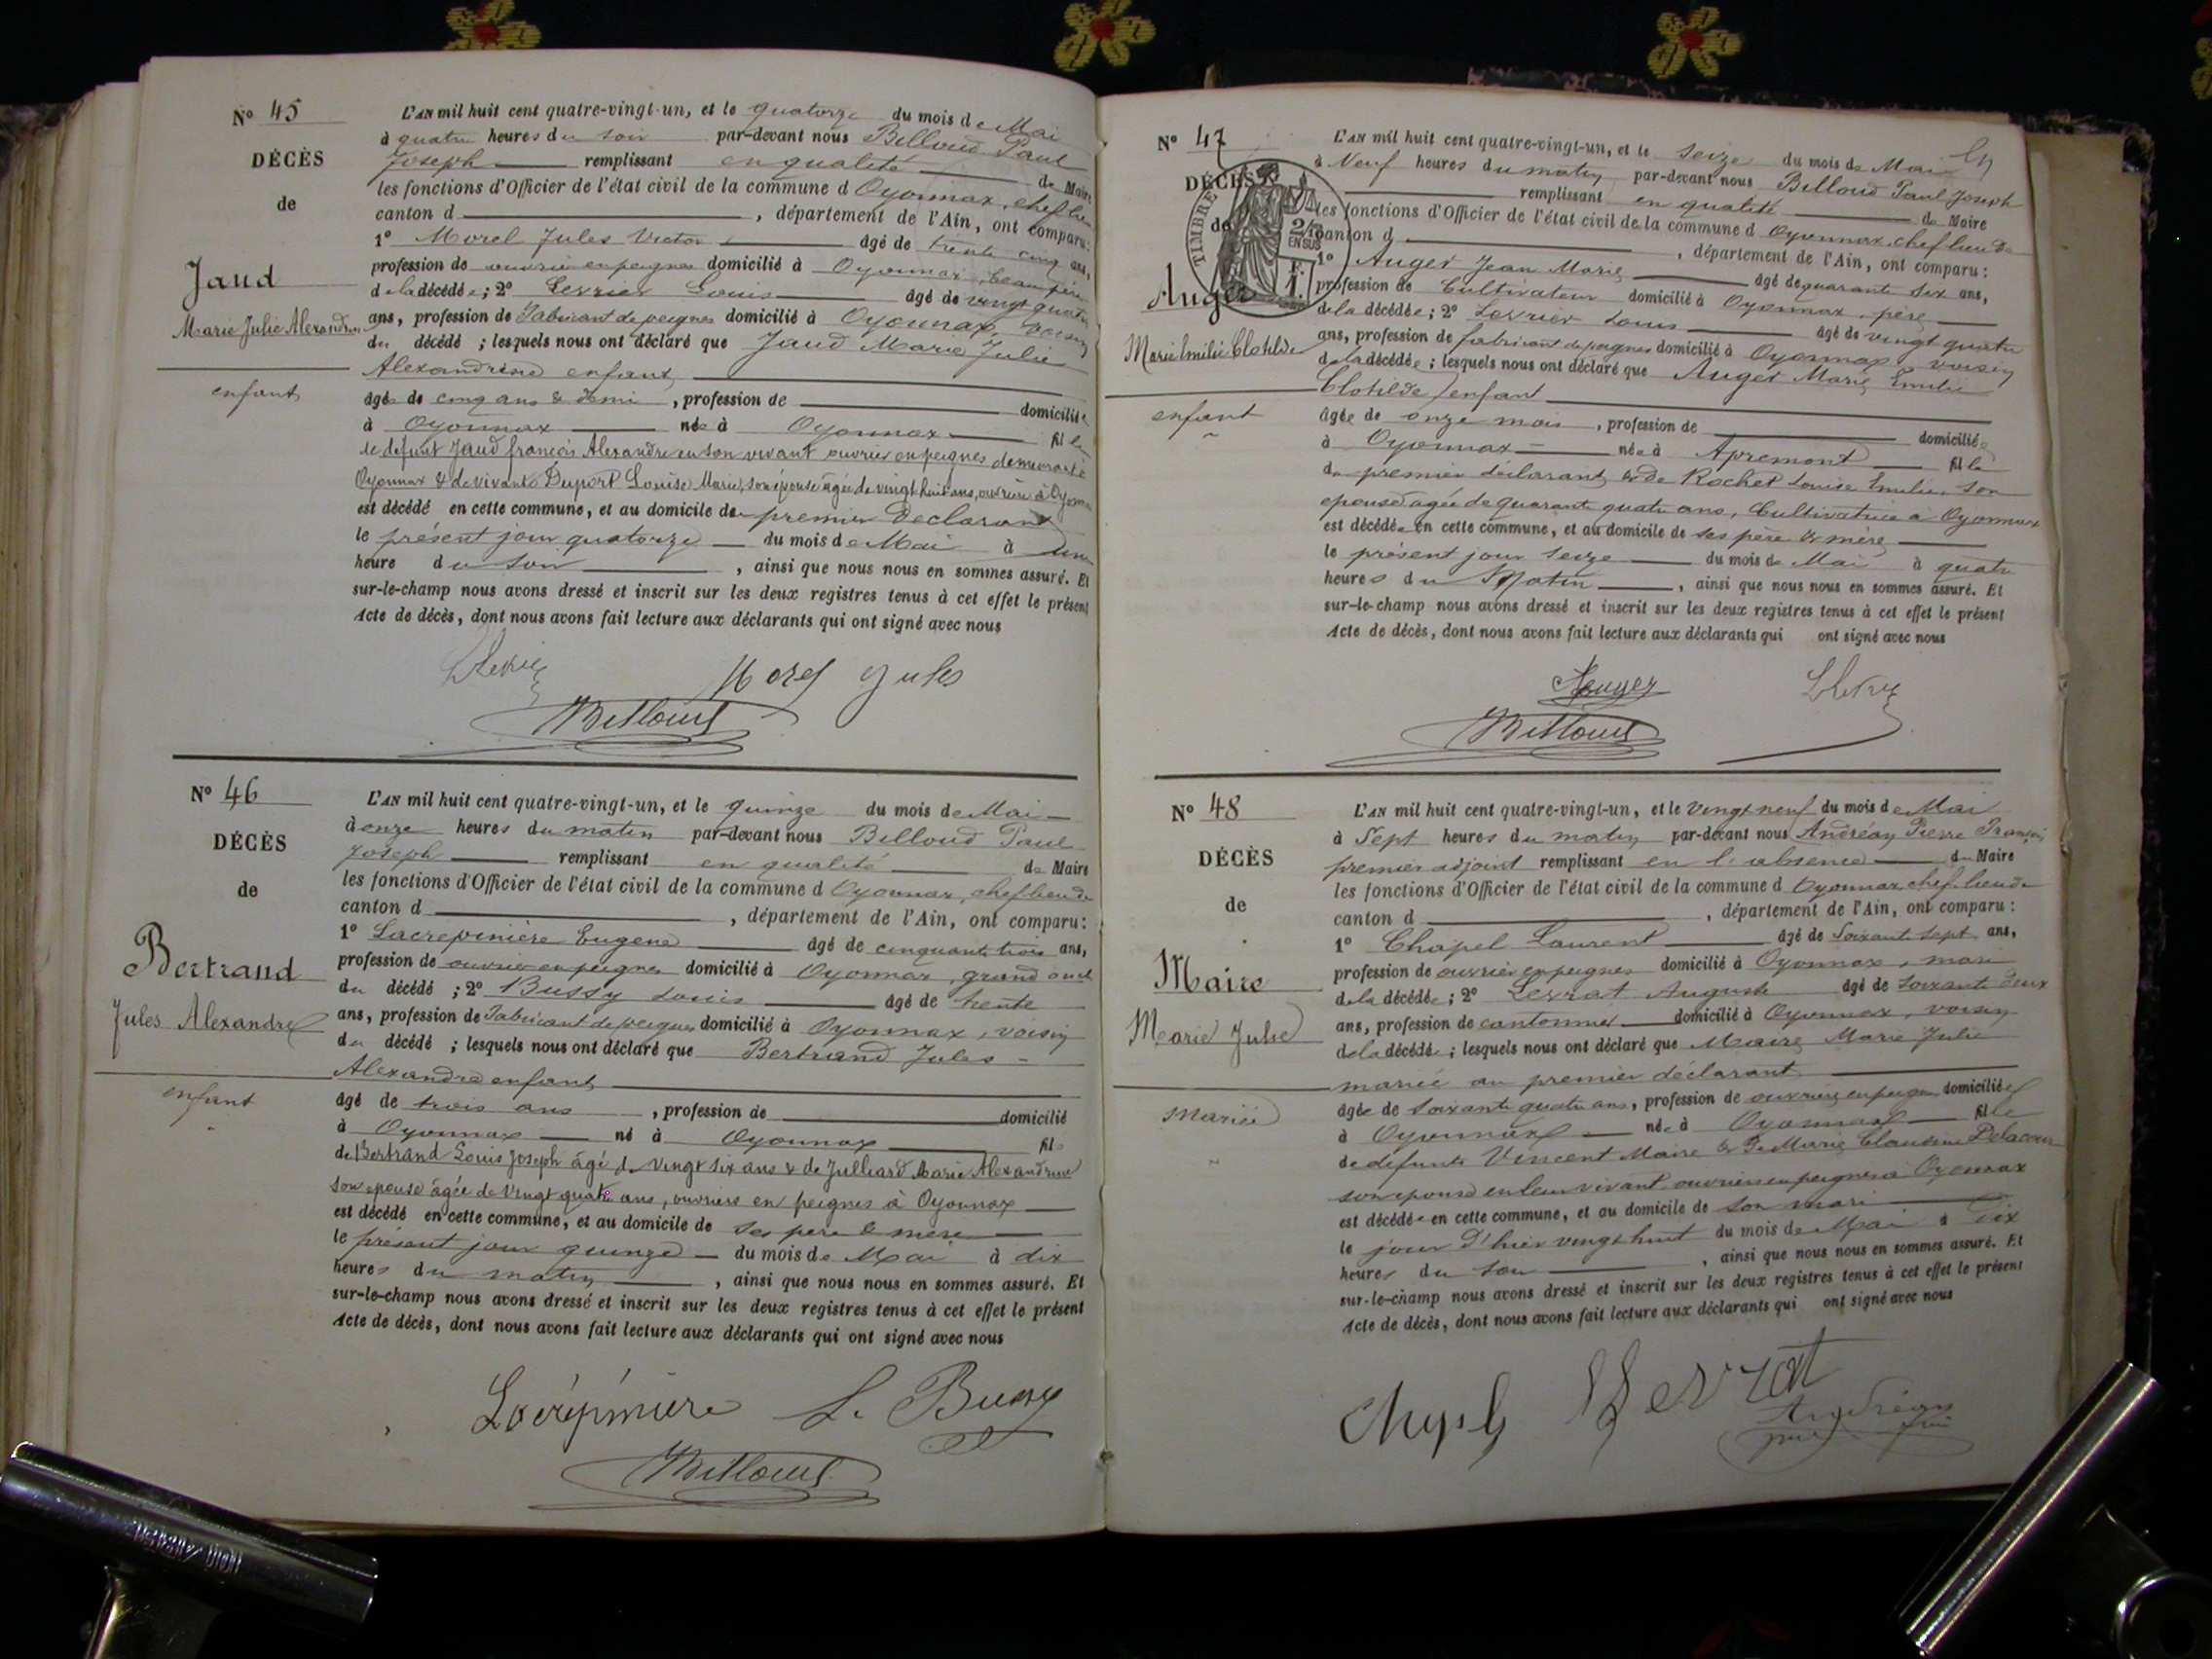 N° 45
DÉCÈS
de
Jaud
Marie Julie Alexandrine
enfant
L'AN mil huit cent quatre-vingt-un, et le quatorze du mois de Mai
à quatre heures du soir par-devant nous Billoud Paul
Joseph remplissant en qualité de Maire
les fonctions d'Officier de l'état civil de la commune d Oyonnax, chef lieu
canton d , département de l'Ain, ont comparu:
1° Morel Jules Victor âgé de trente cinq ans,
profession de ouvrier en peignes domicilié à Oyonnax, beau père
de la décédée; 2° Levrier Louis âgé de vingt quatre
ans, profession de Fabricant de peignes domicilié à Oyonnax, voisin
du décédé ; lesquels nous ont déclaré que Jaud Marie Julie
Alexandrine enfant
âgée de cinq ans & demi , profession de domiciliée
à Oyonnax née à Oyonnax fille
de défunt Jaud françois Alexandre en son vivant ouvrier en peignes demeurant à
Oyonnax & de vivante Duport Louise Marie, son épouse âgée de vingt huit ans, ouvrière à Oyonnax
est décédé en cette commune, et au domicile du premier Déclarant
le présent jour quatorze du mois de Mai à une
heure du soir , ainsi que nous nous en sommes assuré. Et
sur-le-champ nous avons dressé et inscrit sur les deux registres tenus à cet effet le présent
Acte de décès, dont nous avons fait lecture aux déclarants qui ont signé avec nous
Morel Jules
Billoud
N° 46
DÉCÈS
de
Bertrand
Jules Alexandre
enfant
L'AN mil huit cent quatre-vingt-un, et le quinze du mois de Mai
à onze heures du matin par-devant nous Billoud Paul
Joseph remplissant en qualité de Maire
les fonctions d'Officier de l'état civil de la commune d Oyonnax, chef lieu de
canton d , département de l'Ain, ont comparu:
1° Lacrepinière Eugène âgé de cinquante trois ans,
profession de ouvrier en peignes domicilié à Oyonnax, grand oncle
du décédé ; 2° Bussy Louis âgé de trente
ans, profession de Fabricant de peignes domicilié à Oyonnax, voisin
du décédé ; lesquels nous ont déclaré que Bertrand Jules
Alexandre enfant
âgé de trois ans , profession de domicilié
à Oyonnax né à Oyonnax fils
de Bertrand Louis Joseph âgé de vingt six ans & de Julliard Marie Alexandrine
son épouse âgée de vingt quatre ans, ouvriers en peignes à Oyonnax
est décédé en cette commune, et au domicile de ses père & mère
le présent jour quinze du mois de Mai à dix
heures du matin , ainsi que nous nous en sommes assuré. Et
sur-le-champ nous avons dressé et inscrit sur les deux registres tenus à cet effet le présent
Acte de décès, dont nous avons fait lecture aux déclarants qui ont signé avec nous
Lacrépinière L. Bussy
Billoud
N° 47
DÉCÈS
de
TIMBRE
2/10 EN SUS
Auger
Marie Emilie Clotilde
enfant
L'AN mil huit cent quatre-vingt-un, et le seize du mois de Mai
à Neuf heures du matin par-devant nous Billoud Paul Joseph
remplissant en qualité de Maire
les fonctions d'Officier de l'état civil de la commune d Oyonnax, chef lieu de
canton d , département de l'Ain, ont comparu:
1° Auger Jean Marie âgé de quarante six ans,
profession de Cultivateur domicilié à Oyonnax, père
de la décédée; 2° Levrier Louis âgé de vingt quatre
ans, profession de fabricant de peignes domicilié à Oyonnax, voisin
de la décédée; lesquels nous ont déclaré que Auger Marie Emilie
Clotilde enfant
âgée de onze mois , profession de domiciliée
à Oyonnax née à Apremont fille
du premier déclarant & de Rochet Louise Emilie, son
épouse âgée de quarante quatre ans, Cultivatrice à Oyonnax
est décédée en cette commune, et au domicile de ses père & mère
le présent jour seize du mois de Mai à quatre
heures du Matin , ainsi que nous nous en sommes assuré. Et
sur-le-champ nous avons dressé et inscrit sur les deux registres tenus à cet effet le présent
Acte de décès, dont nous avons fait lecture aux déclarants qui ont signé avec nous
Billoud
N° 48
DÉCÈS
de
Maire
Marie Julie
Mariée
L'AN mil huit cent quatre-vingt-un, et le vingt neuf du mois de Mai
à Sept heures du matin par-devant nous Andréay Pierre François
premier adjoint remplissant en l'absence du Maire
les fonctions d'Officier de l'état civil de la commune d Oyonnax, chef lieu de
canton d , département de l'Ain, ont comparu:
1° Chapel Laurent âgé de Soixante Sept ans,
profession de ouvrier en peignes domicilié à Oyonnax, mari
de la décédée; 2° Levrat Auguste âgé de soixante deux
ans, profession de cantonnier domicilié à Oyonnax, voisin
de la décédée; lesquels nous ont déclaré que Maire Marie Julie
mariée au premier déclarant
âgée de soixante quatre ans, profession de ouvrière en peignes domiciliée
à Oyonnax née à Oyonnax fille
de défunts Vincent Maire & de Marie Claudine Delacour
son épouse en leur vivant ouvriers en peignes à Oyonnax
est décédée en cette commune, et au domicile de son mari
le jour d'hier vingt huit du mois de Mai à Dix
heures du soir , ainsi que nous nous en sommes assuré. Et
sur-le-champ nous avons dressé et inscrit sur les deux registres tenus à cet effet le présent
Acte de décès, dont nous avons fait lecture aux déclarants qui ont signé avec nous
Levrat